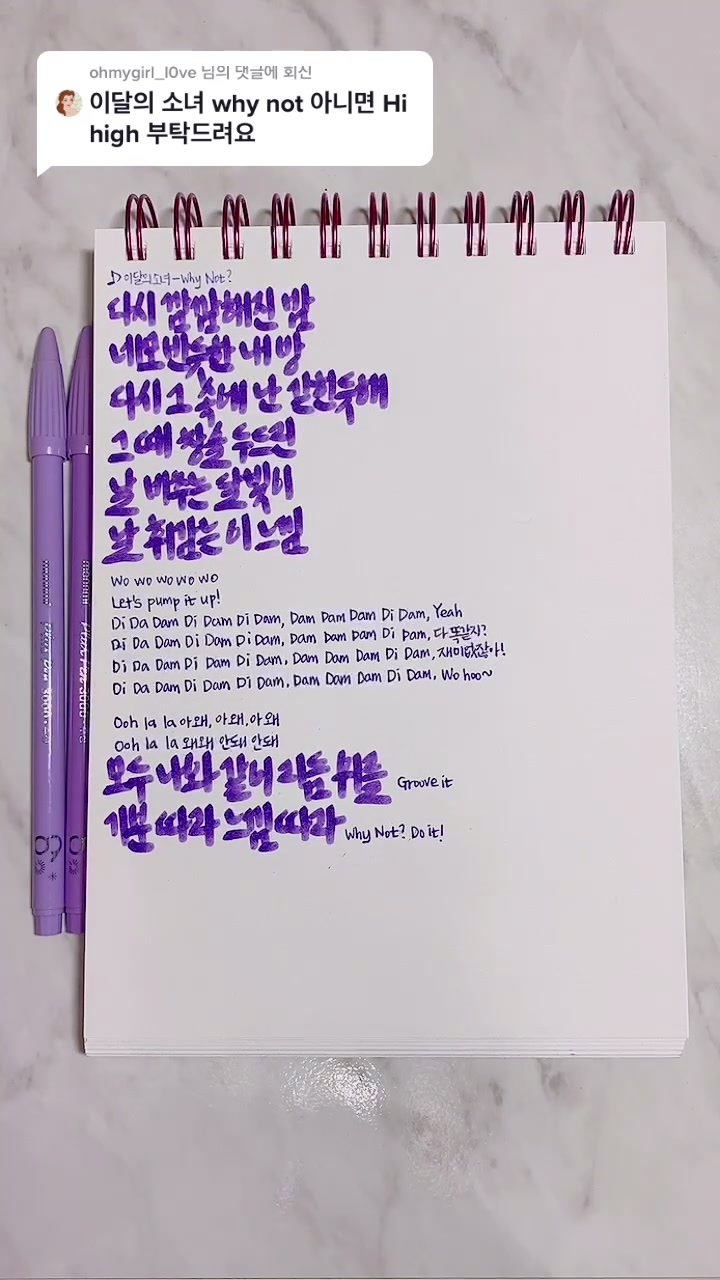 ohmygirl_l0ve 님의 댓글에 회신
이달의 소녀 why not 아니면 Hi
high 부탁드려요
♪이달의소녀-Why Not?
다시 깜깜해진 밤
네모반듯한 내 방
다시 그 속에 난 갇힌듯해
그때 창을 두드린
날 비추는 달빛이
날 휘감는 이 느낌
Wo wo wo wo wo
Let's pump it up!
Di Da Dam Di Dam Di Dam, Dam Dam Dam Di Dam, Yeah
Di Da Dam Di Dam Di Dam, Dam Dam Dam Di Dam, 다 똑같지?
Di Da Dam Di Dam Di Dam, Dam Dam Dam Di Dam, 재미없잖아!
Di Da Dam Di Dam Di Dam, Dam Dam Dam Di Dam, Wo hoo~
Ooh la la 아왜, 아왜, 아왜
Ooh la la 왜왜 안돼 안돼
모두 나와 같이 리듬 위를 Groove it
기분 따라 느낌 따라 Why Not? Do it!